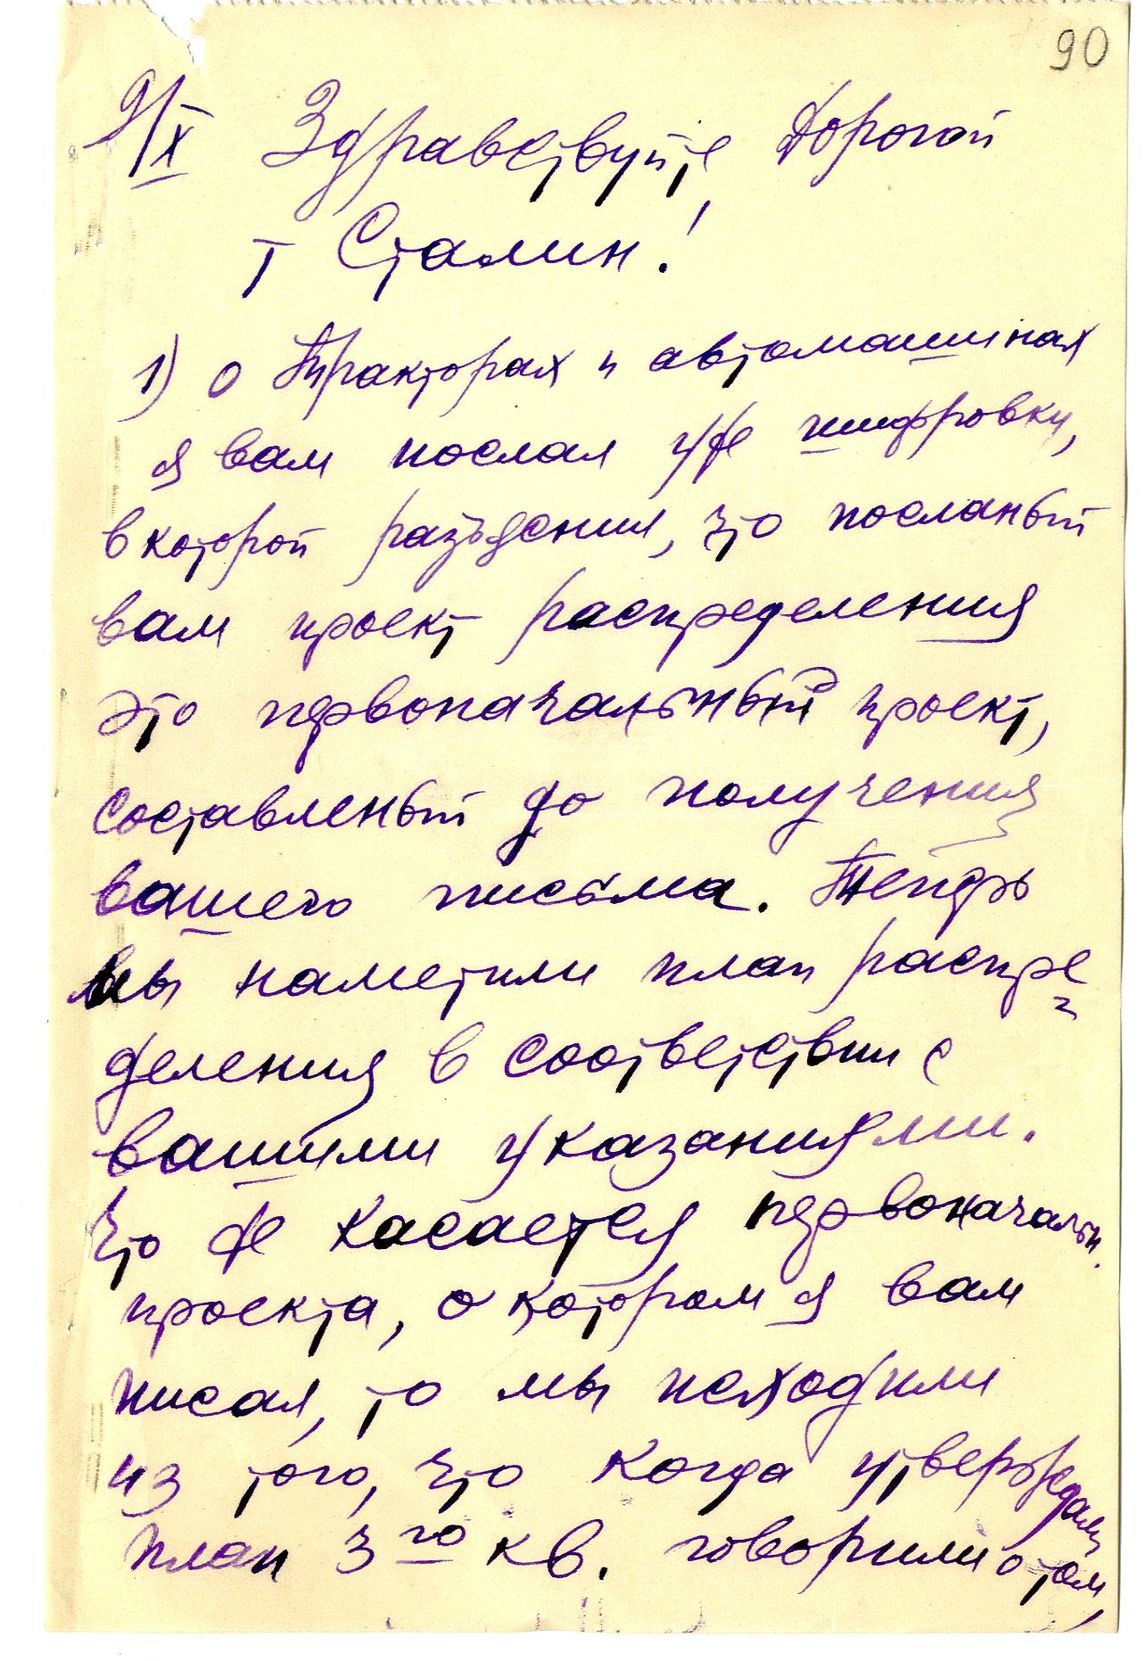 90
9/X Здравствуйте, Дорогой
т Сталин!
1) о Тракторах и автомашинах
я вам послал уже шифровку,
в которой разъяснил, что посланый
вам проект распределения
это первоначальный проект,
составленый до получения
вашего письма. Теперь
мы наметили план распре
деления в соответствии с
вашими указаниями.
Что же касается первоначальн.
проекта, о котором я вам
писал, то мы исходили
из того, что когда утверждали
план 3го кв. говорили о том,